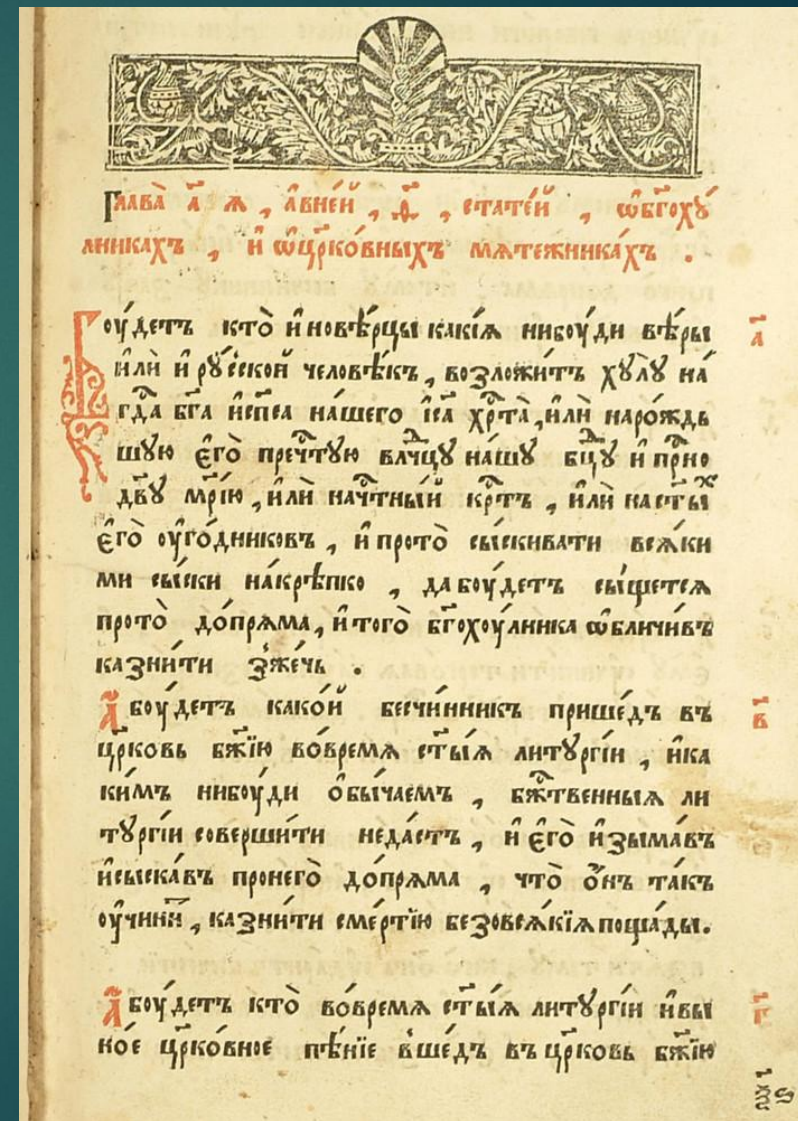 Глава̀ а҃ я , авне́й , ѳ҃ , стате́й , ѡбг҃охꙋ́
лникахъ , и҆ ѡцр҃ко́вныхъ мятежника́хъ .
Боу́детъ кто̀ и҆новѣ́рцы какі́я нибоу́ди вѣ́ры
и҆лѝ и҆ рꙋ́сской человѣ́къ , возложи́тъ хꙋлꙋ̀ на́
гд҇а бг҃а и҆сп҃са на́шего і҆с҃а хрⷭ҇та̀ , и҆лѝ наро́ждь
шꙋю є҆го̀ пречⷭ҇тую влⷣчцꙋ на́шꙋ бцⷣꙋ и҆ прⷭ҇но
дв҃ꙋ мр҃і́ю , и҆лѝ начⷭ҇тны́й крⷭ҇тъ , и҆лѝ наст҃ы́ⷯ
є҆го̀ оу҆го́дниковъ , и҆ прото̀ сы́скивати вся́ки
ми сы́ски на́крѣпко , да боу́детъ сы́щется
прото̀ до́пряма , и҆ того̀ бг҃охоу́лника ѡ҆бличи́въ
казни́ти зже́чь .
А҆ боу́детъ како́й бесчи́нникъ прише́дъ въ
цр҃ковь бж҃ію во́время ст҃ы́я литꙋргі́и , и҆ка
ки́мъ нибоу́ди ѻ҆бы́чаемъ , бжⷭ҇твенныя ли
тꙋргі́и соверши́ти неда́стъ , и҆ є҆го̀ и҆зыма́въ
и҆сыска́въ пронего̀ до́пряма , что̀ ѻ҆́нъ та́къ
оу҆чини́тъ , казни́ти сме́ртію безовся́кія поща́ды .
А҆ боу́детъ кто̀ во́время ст҃ы́я литꙋргі́и и҆вы
но́е цр҃ко́вное пѣ́ніе вше́дъ въ цр҃ковь бж҃ію
а҃
в҃
г҃